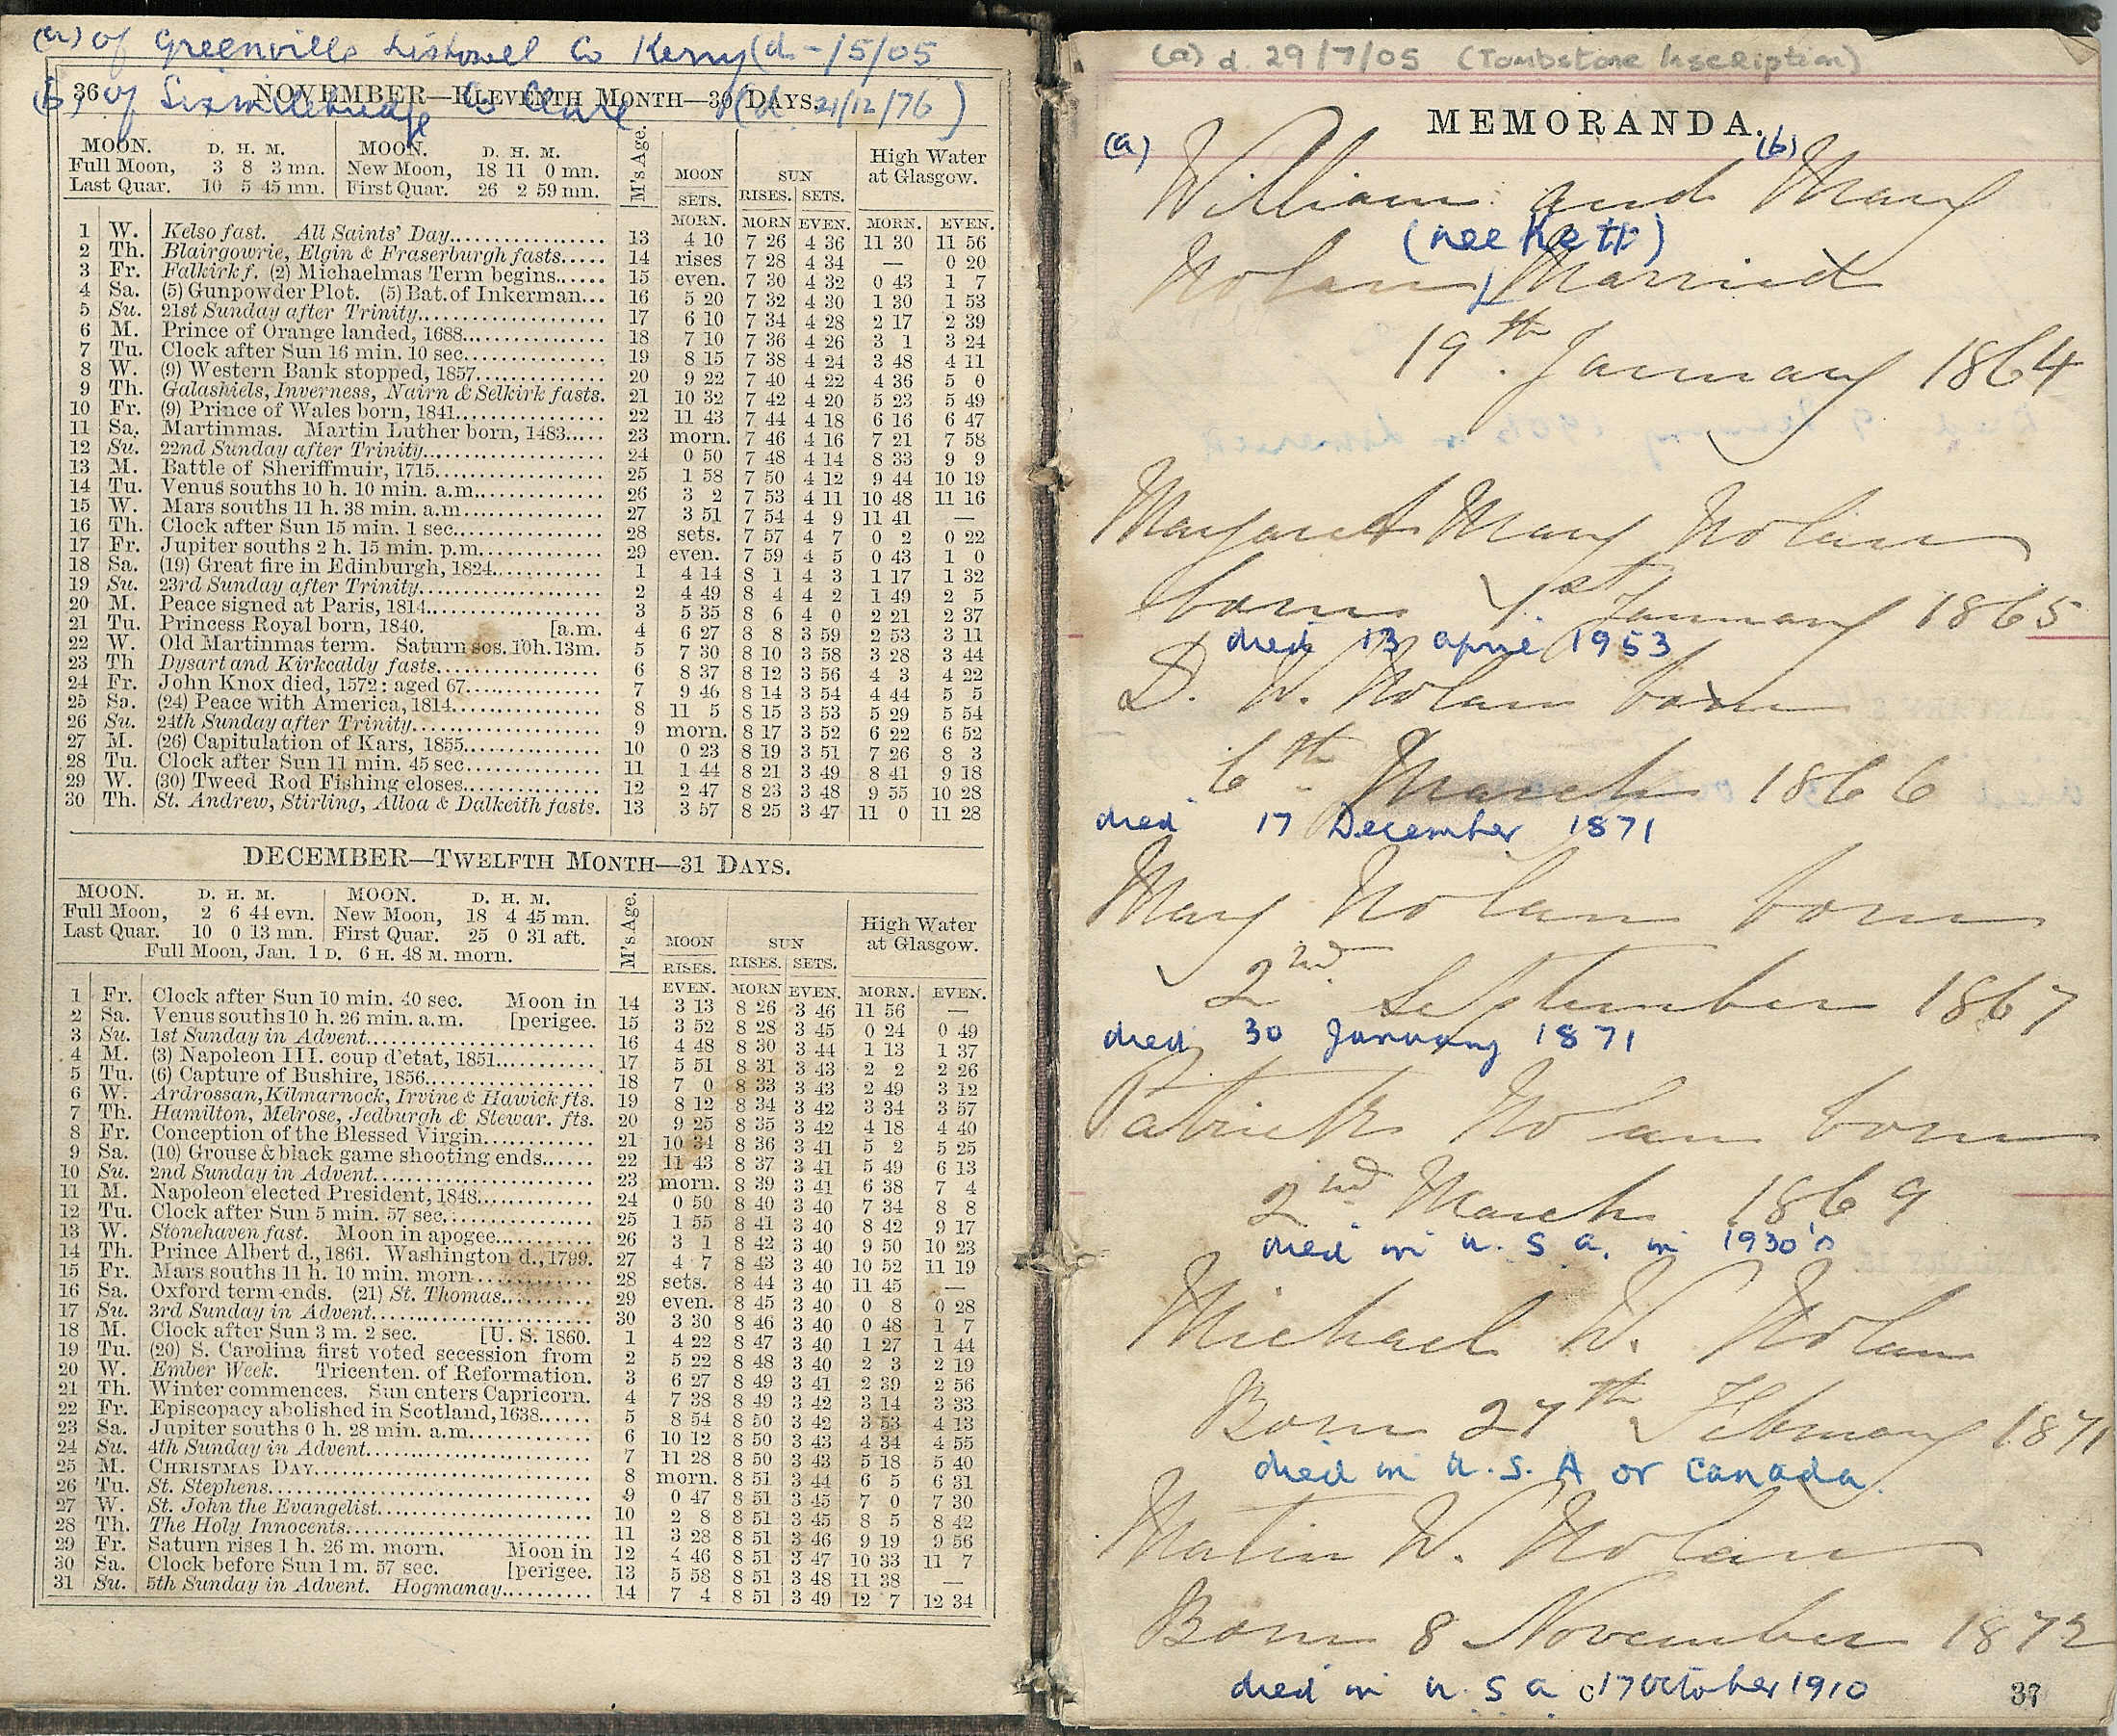 (a) of Greenville Listowel Co Kerry (d -/5/05
(b) of Sixmilebridge Co Clare (d. 21/12/76)
36 NOVEMBER—ELEVENTH MONTH—30 DAYS.
MOON. D. H. M. MOON. D. H. M.
Full Moon, 3 8 3 mn. New Moon, 18 11 0 mn.
Last Quar. 10 5 45 mn. First Quar. 26 2 59 mn.
M's Age. MOON SETS. SUN RISES. SETS. High Water at Glasgow.
MORN. MORN EVEN. MORN. EVEN.
1 W. Kelso fast. All Saints' Day. 13 4 10 7 26 4 36 11 30 11 56
2 Th. Blairgowrie, Elgin & Fraserburgh fasts. 14 rises 7 28 4 34 — 0 20
3 Fr. Falkirk f. (2) Michaelmas Term begins. 15 even. 7 30 4 32 0 43 1 7
4 Sa. (5) Gunpowder Plot. (5) Bat. of Inkerman... 16 5 20 7 32 4 30 1 30 1 53
5 Su. 21st Sunday after Trinity. 17 6 10 7 34 4 28 2 17 2 39
6 M. Prince of Orange landed, 1688. 18 7 10 7 36 4 26 3 1 3 24
7 Tu. Clock after Sun 16 min. 10 sec. 19 8 15 7 38 4 24 3 48 4 11
8 W. (9) Western Bank stopped, 1857. 20 9 22 7 40 4 22 4 36 5 0
9 Th. Galashiels, Inverness, Nairn & Selkirk fasts. 21 10 32 7 42 4 20 5 23 5 49
10 Fr. (9) Prince of Wales born, 1841. 22 11 43 7 44 4 18 6 16 6 47
11 Sa. Martinmas. Martin Luther born, 1483. 23 morn. 7 46 4 16 7 21 7 58
12 Su. 22nd Sunday after Trinity. 24 0 50 7 48 4 14 8 33 9 9
13 M. Battle of Sheriffmuir, 1715. 25 1 58 7 50 4 12 9 44 10 19
14 Tu. Venus souths 10 h. 10 min. a.m. 26 3 2 7 53 4 11 10 48 11 16
15 W. Mars souths 11 h. 38 min. a.m. 27 3 51 7 54 4 9 11 41 —
16 Th. Clock after Sun 15 min. 1 sec. 28 sets. 7 57 4 7 0 2 0 22
17 Fr. Jupiter souths 2 h. 15 min. p.m. 29 even. 7 59 4 5 0 43 1 0
18 Sa. (19) Great fire in Edinburgh, 1824. 1 4 14 8 1 4 3 1 17 1 32
19 Su. 23rd Sunday after Trinity. 2 4 49 8 4 4 2 1 49 2 5
20 M. Peace signed at Paris, 1814. 3 5 35 8 6 4 0 2 21 2 37
21 Tu. Princess Royal born, 1840. [a.m. 4 6 27 8 8 3 59 2 53 3 11
22 W. Old Martinmas term. Saturn sos. 10h. 13m. 5 7 30 8 10 3 58 3 28 3 44
23 Th Dysart and Kirkcaldy fasts. 6 8 37 8 12 3 56 4 3 4 22
24 Fr. John Knox died, 1572: aged 67. 7 9 46 8 14 3 54 4 44 5 5
25 Sa. (24) Peace with America, 1814. 8 11 5 8 15 3 53 5 29 5 54
26 Su. 24th Sunday after Trinity. 9 morn. 8 17 3 52 6 22 6 52
27 M. (26) Capitulation of Kars, 1855. 10 0 23 8 19 3 51 7 26 8 3
28 Tu. Clock after Sun 11 min. 45 sec. 11 1 44 8 21 3 49 8 41 9 18
29 W. (30) Tweed Rod Fishing closes. 12 2 47 8 23 3 48 9 55 10 28
30 Th. St. Andrew, Stirling, Alloa & Dalkeith fasts. 13 3 57 8 25 3 47 11 0 11 28
DECEMBER—TWELFTH MONTH—31 DAYS.
MOON. D. H. M. MOON. D. H. M.
Full Moon, 2 6 44 evn. New Moon, 18 4 45 mn.
Last Quar. 10 0 13 mn. First Quar. 25 0 31 aft.
Full Moon, Jan. 1 D. 6 H. 48 M. morn.
M's Age. MOON RISES. SUN RISES. SETS. High Water at Glasgow.
EVEN. MORN EVEN. MORN. EVEN.
1 Fr. Clock after Sun 10 min. 40 sec. Moon in 14 3 13 8 26 3 46 11 56 —
2 Sa. Venus souths 10 h. 26 min. a.m. [perigee. 15 3 52 8 28 3 45 0 24 0 49
3 Su. 1st Sunday in Advent. 16 4 48 8 30 3 44 1 13 1 37
4 M. (3) Napoleon III. coup d'etat, 1851. 17 5 51 8 31 3 43 2 2 2 26
5 Tu. (6) Capture of Bushire, 1856. 18 7 0 8 33 3 43 2 49 3 12
6 W. Ardrossan, Kilmarnock, Irvine & Hawick fts. 19 8 12 8 34 3 42 3 34 3 57
7 Th. Hamilton, Melrose, Jedburgh & Stewar. fts. 20 9 25 8 35 3 42 4 18 4 40
8 Fr. Conception of the Blessed Virgin. 21 10 34 8 36 3 41 5 2 5 25
9 Sa. (10) Grouse & black game shooting ends. 22 11 43 8 37 3 41 5 49 6 13
10 Su. 2nd Sunday in Advent. 23 morn. 8 39 3 41 6 38 7 4
11 M. Napoleon elected President, 1848. 24 0 50 8 40 3 40 7 34 8 8
12 Tu. Clock after Sun 5 min. 57 sec. 25 1 55 8 41 3 40 8 42 9 17
13 W. Stonehaven fast. Moon in apogee. 26 3 1 8 42 3 40 9 50 10 23
14 Th. Prince Albert d., 1861. Washington d., 1799. 27 4 7 8 43 3 40 10 52 11 19
15 Fr. Mars souths 11 h. 10 min. morn. 28 sets. 8 44 3 40 11 45 —
16 Sa. Oxford term ends. (21) St. Thomas. 29 even. 8 45 3 40 0 8 0 28
17 Su. 3rd Sunday in Advent. 30 3 30 8 46 3 40 0 48 1 7
18 M. Clock after Sun 3 m. 2 sec. [U. S. 1860. 1 4 22 8 47 3 40 1 27 1 44
19 Tu. (20) S. Carolina first voted secession from 2 5 22 8 48 3 40 2 3 2 19
20 W. Ember Week. Tricenten. of Reformation. 3 6 27 8 49 3 41 2 39 2 56
21 Th. Winter commences. Sun enters Capricorn. 4 7 38 8 49 3 42 3 14 3 33
22 Fr. Episcopacy abolished in Scotland, 1638. 5 8 54 8 50 3 42 3 53 4 13
23 Sa. Jupiter souths 0 h. 28 min. a.m. 6 10 12 8 50 3 43 4 34 4 55
24 Su. 4th Sunday in Advent. 7 11 28 8 50 3 43 5 18 5 40
25 M. CHRISTMAS DAY. 8 morn. 8 51 3 44 6 5 6 31
26 Tu. St. Stephens. 9 0 47 8 51 3 45 7 0 7 30
27 W. St. John the Evangelist. 10 2 8 8 51 3 45 8 5 8 42
28 Th. The Holy Innocents. 11 3 28 8 51 3 46 9 19 9 56
29 Fr. Saturn rises 1 h. 26 m. morn. Moon in 12 4 46 8 51 3 47 10 33 11 7
30 Sa. Clock before Sun 1 m. 57 sec. [perigee. 13 5 58 8 51 3 48 11 38 —
31 Su. 5th Sunday in Advent. Hogmanay. 14 7 4 8 51 3 49 12 7 12 34
(a) d. 29/7/05 (Tombstone Inscription)
MEMORANDA.
(a) William and (b) Mary
(nee Kett)
Nolan Married
19th January 1864
Margaret Mary Nolan
born 1st January 1865
died 13 april 1953
D. W. Nolan born
6th March 1866
died 17 December 1871
Mary Nolan born
2nd September 1867
died 30 January 1871
Patrick Nolan born
2nd March 1869
died in U.S.a. in 1930's
Michael W. Nolan
Born 27th February 1871
died in U.S.A or Canada.
Matin W. Nolan
Born 8 November 1872
died in U.S a c 17 October 1910
37